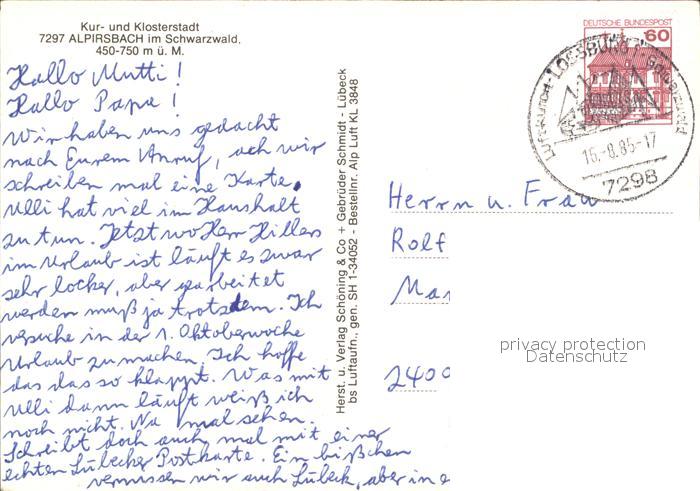 Kur- und Klosterstadt
7297 ALPIRSBACH im Schwarzwald,
450-750 m ü. M.
Hallo Mutti!
Hallo Papa!
Wir haben uns gedacht
nach Eurem Anruf, ach wir
schreiben mal eine Karte.
Ulli hat viel im Haushalt
zu tun. Jetzt wo Herr Hillers
im Urlaub ist läuft es zwar
sehr locker, aber gearbeitet
werden muß ja trotsdem. Ich
versuche in der 1. Oktoberwoche
Urlaub zu machen. Ich hoffe
das das so klappt. Was mit
Ulli dann läuft weiß ich
noch nicht. Na mal sehen.
Schreibt doch auch mal mit einer
echten Lübecker Postkarte. Ein bißchen
vermissen wir auch Lübeck, aber in
Herst. u. Verlag Schöning & Co + Gebrüder Schmidt - Lübeck
bs Luftaufn., gen. SH 1-34052 - Bestellnr. Alp Luft KL 3848
DEUTSCHE BUNDESPOST
60
Luftkurort LOSSBURG Schwarzwald
15.-8.85-17
7298
Herrn u. Frau
Rolf
Ma
2400
privacy protection
Datenschutz